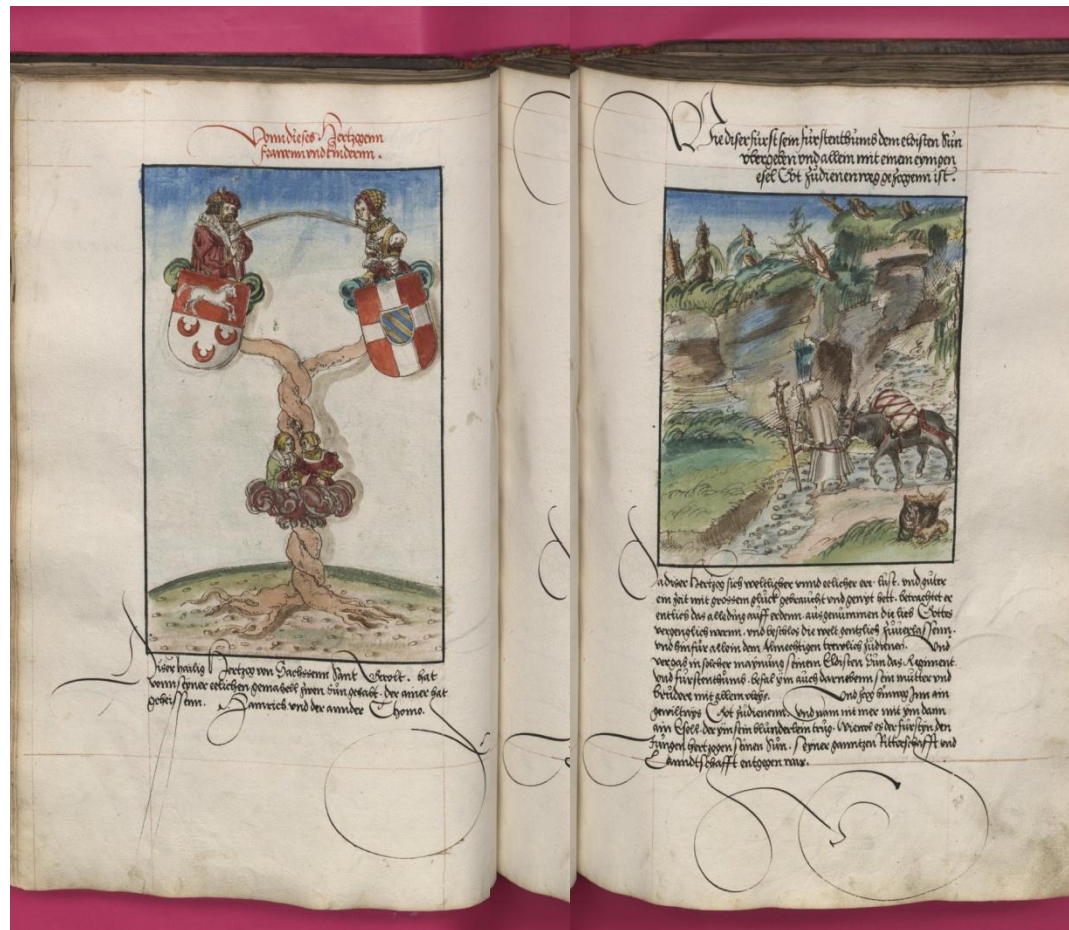 Vonn dieses Hertzogenn
frawenn vnd kinderrn.
Diser hailig Hertzog von Sachssenn Sant  hat
vonn seyner eelichen gemahell zwen Sün gehabt. der ainer hat
geheissenn. Hainrich vnd der annder Thomo.
Wie diser fürst sein fürstenthumb dem eldisten Sun
vbergeben vnd allein mit einem eynigen
esel Got zudienen weg gezogenn ist.
Da diser Hertzog sich weltlicher vnnd eelicher eer. lust. vnd gütter
ein zeit mit grossem glück gebraucht vnd genyt hett. betrachtet er
entlich das alle ding auff erdenn. ausgenummen die lieb Gottes
vergenglich wernn. vnd beschlos die welt gentzlich zuuerlassenn.
vnd hinfür allein dem Almechtigen trewlich zudienen. Vnd
vergab in solcher maynung seinem Eldisten Sun das Regiment
vnd fürstenthumb. befal ym auch darnebenn sein mutter vnd
brudere mit allem vleys. Vnd zog hinweg Inn ain
gewiltnys Got zudienenn. Vnd nam nit mer mit ym dann
ain Esell. der ym sein blunderlein trug. Wiewol es der fürstyn den
Jungen hertzogen seinen Sün. seyner ganntzen Ritterschafft vnd
Lanndtschafft entgegen war.